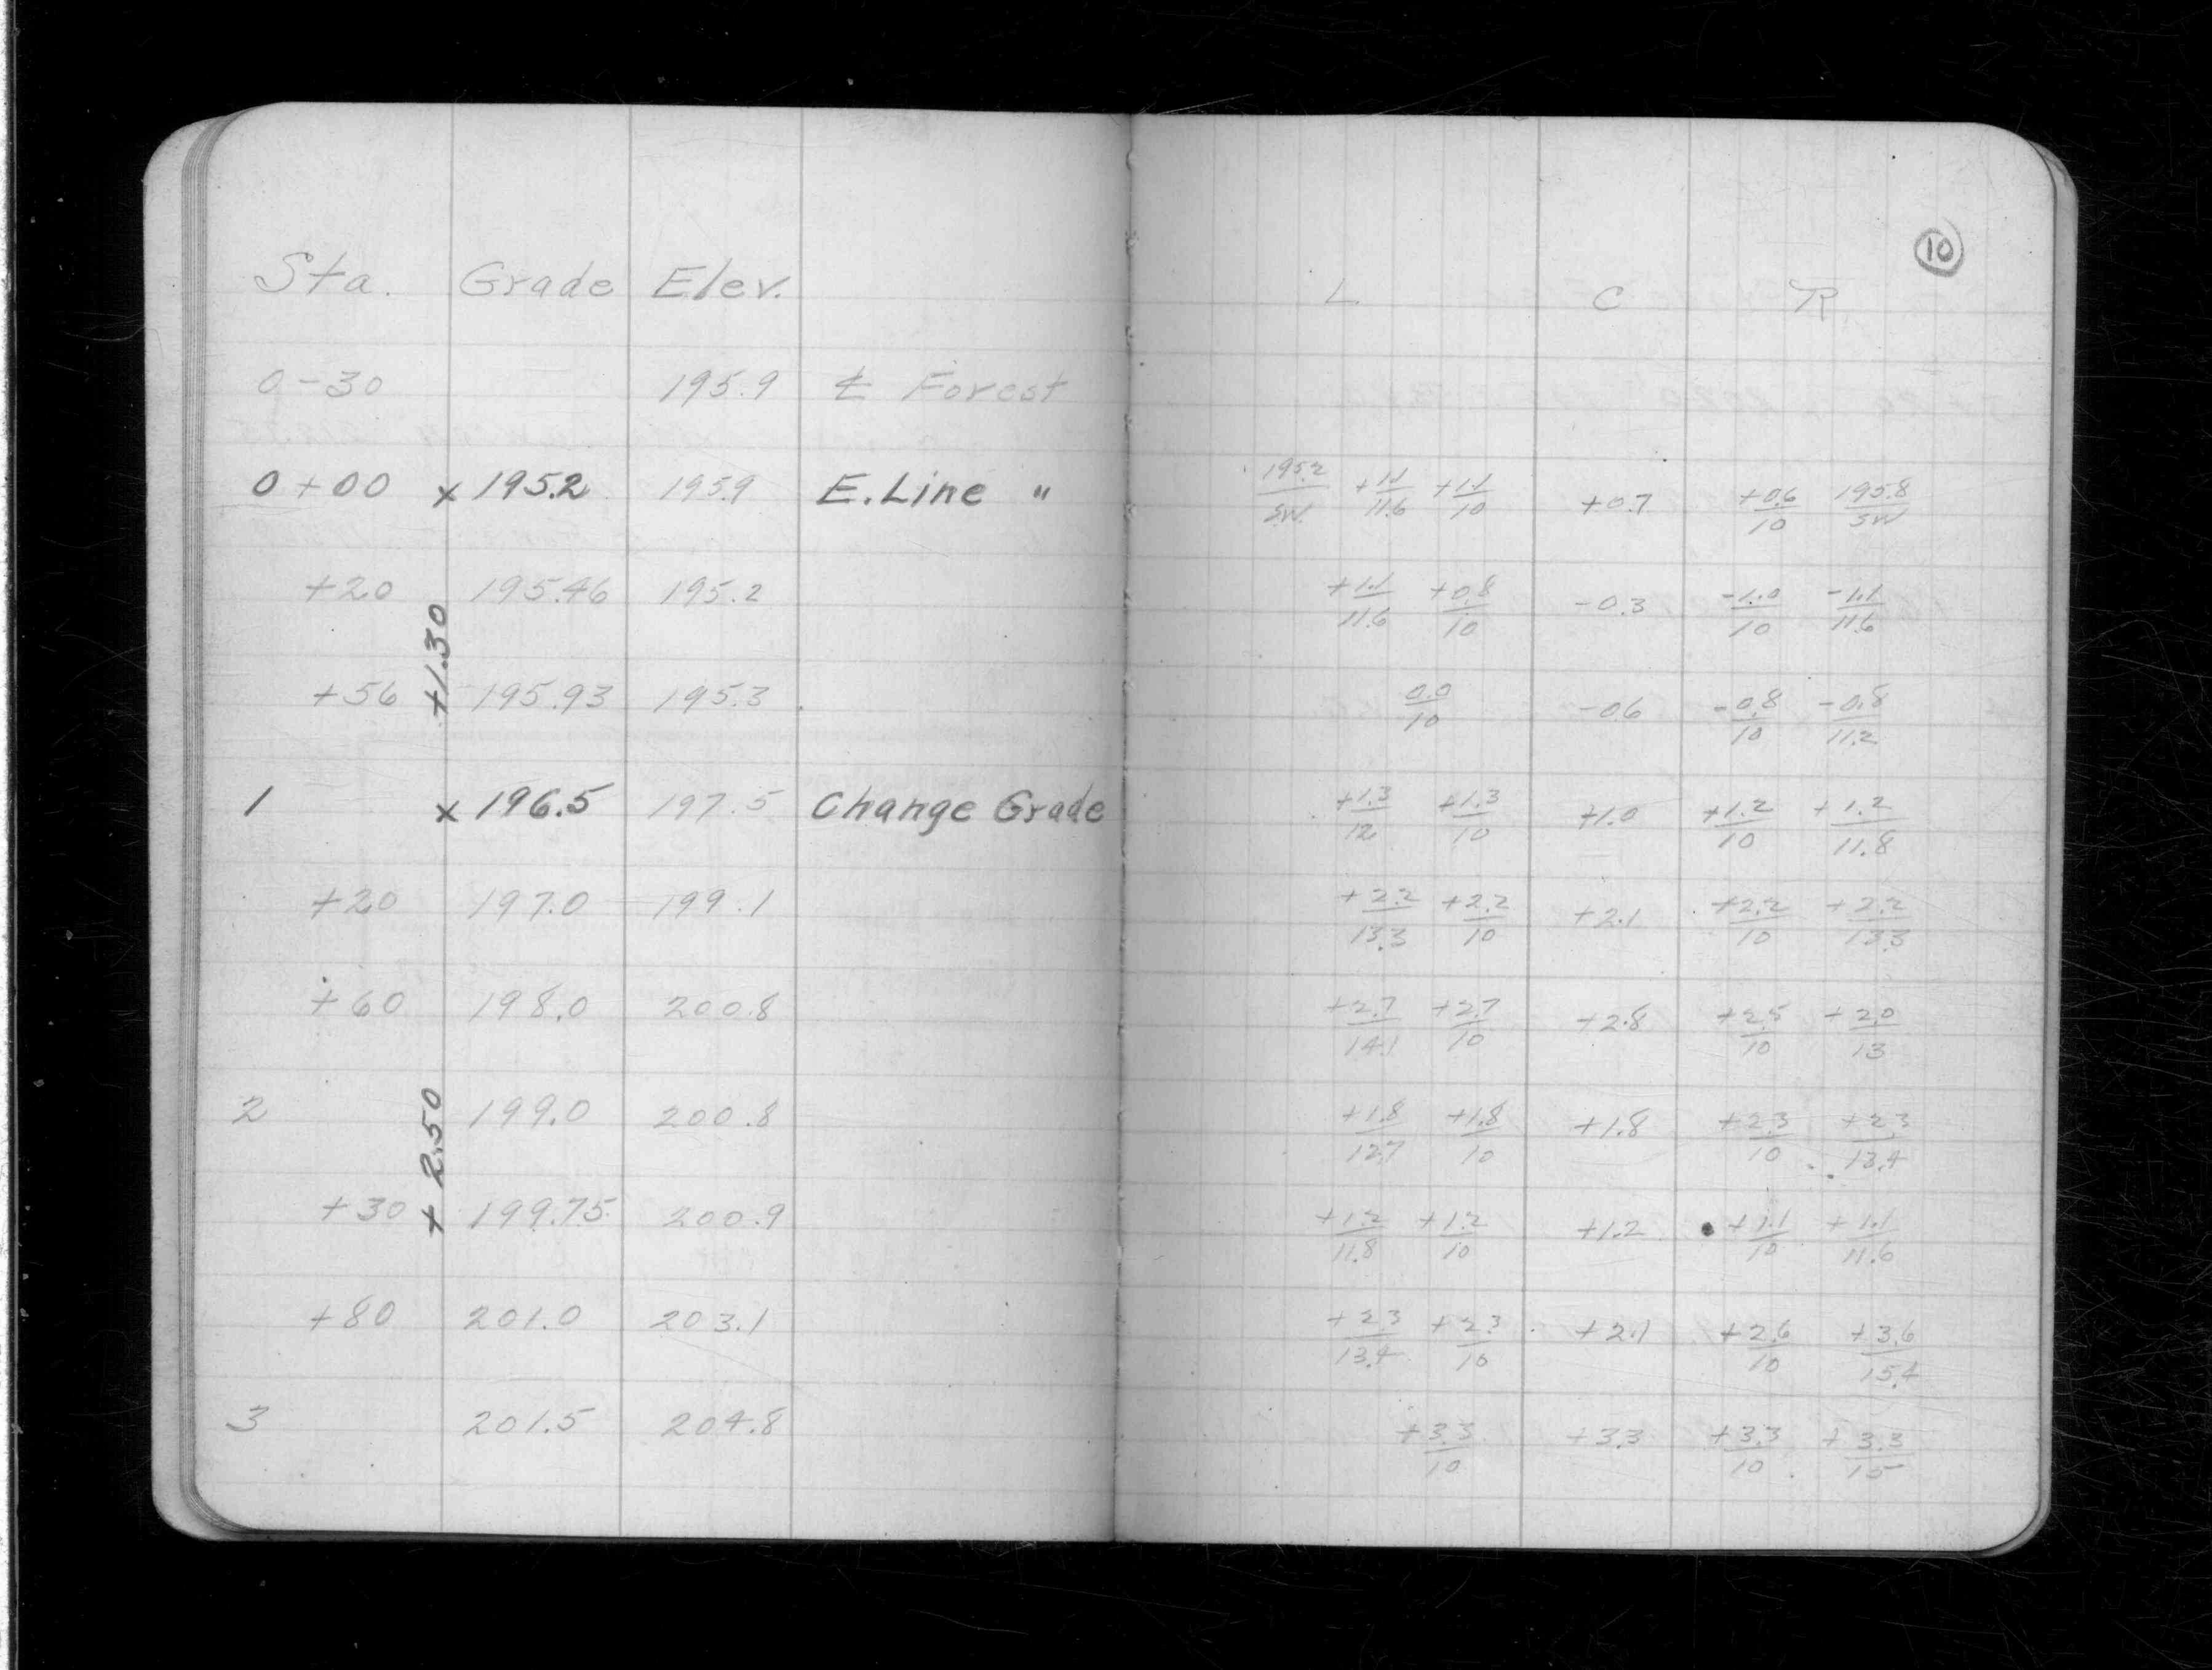 10
Sta. Grade Elev. L C R
0-30 195.9 ℄ Forest
0+00 x 195.2 195.9 E. Line " 195.2/S.W. +1.1/11.6 +1.1/10 +0.7 +0.6/10 195.8/SW
+20 195.46 195.2 +1.1/11.6 +0.8/10 -0.3 -1.0/10 -1.1/11.6
+1.30
+56 195.93 195.3 0.0/10 -0.6 -0.8/10 -0.8/11.2
1 x 196.5 197.5 Change Grade +1.3/12 +1.3/10 +1.0 +1.2/10 +1.2/11.8
+20 197.0 199.1 +2.2/13.3 +2.2/10 +2.1 +2.2/10 +2.2/13.3
+60 198.0 200.8 +2.7/14.1 +2.7/10 +2.8 +2.5/10 +2.0/13
2 199.0 200.8 +1.8/12.7 +1.8/10 +1.8 +2.3/10 +2.3/13.4
+2.50
+30 199.75 200.9 +1.2/11.8 +1.2/10 +1.2 +1.1/10 +1.1/11.6
+80 201.0 203.1 +2.3/13.4 +2.3/10 +2.1 +2.6/10 +3.6/15.4
3 201.5 204.8 +3.3/10 +3.3 +3.3/10 +3.3/15